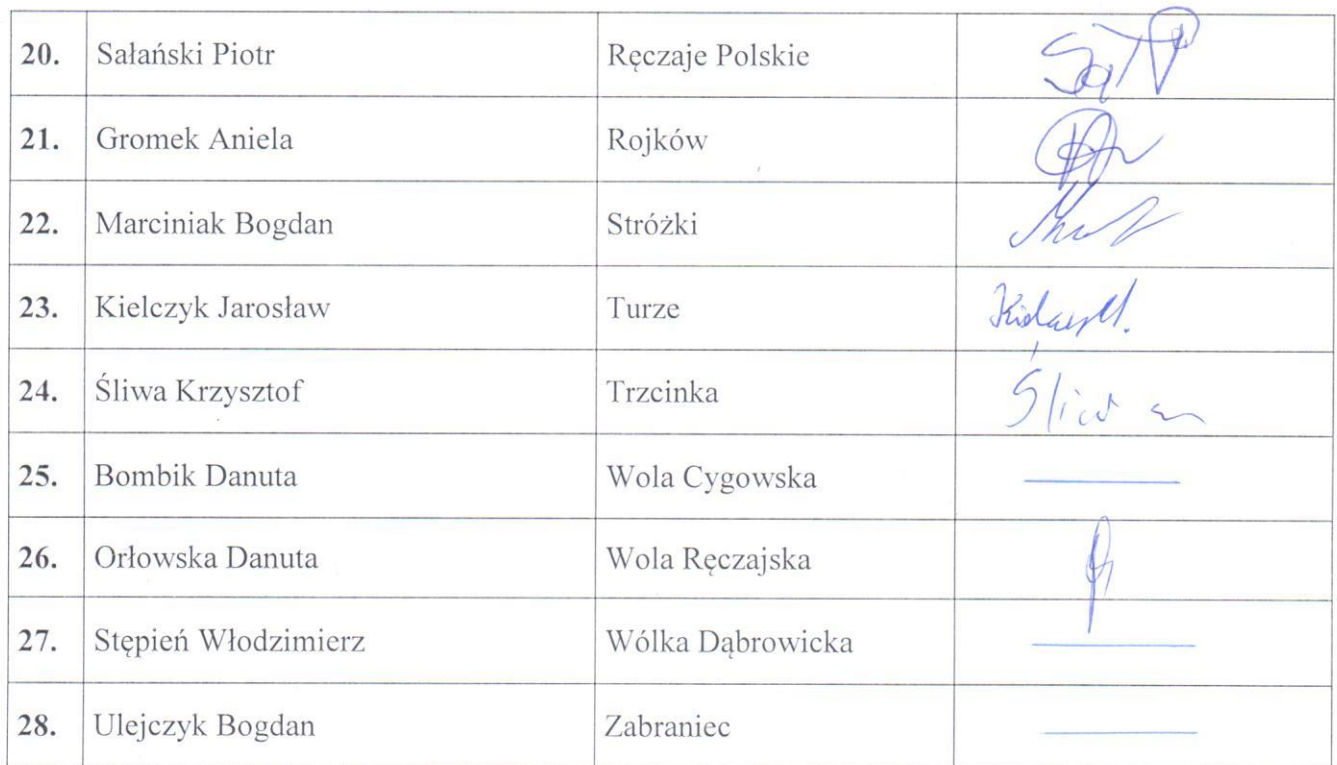 20. Sałański Piotr Ręczaje Polskie
21. Gromek Aniela Rojków
22. Marciniak Bogdan Stróżki
23. Kielczyk Jarosław Turze
24. Śliwa Krzysztof Trzcinka Śliwa
25. Bombik Danuta Wola Cygowska
26. Orłowska Danuta Wola Ręczajska
27. Stępień Włodzimierz Wólka Dąbrowicka
28. Ulejczyk Bogdan Zabraniec